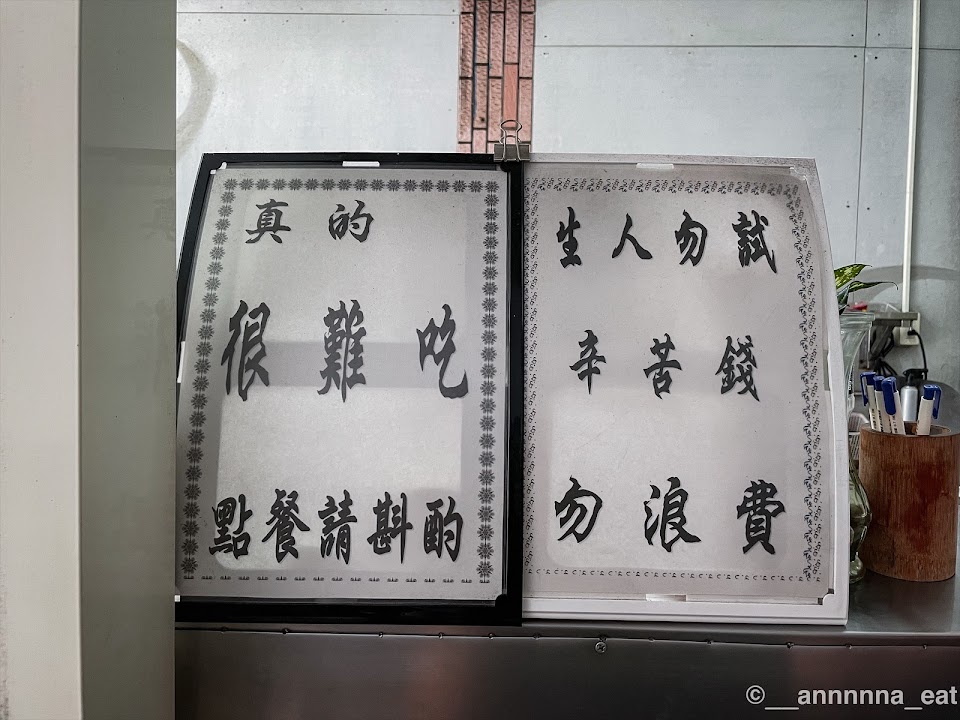 真的
很難吃
點餐請斟酌
生人勿試
辛苦錢
勿浪費
©__annnnna_eat